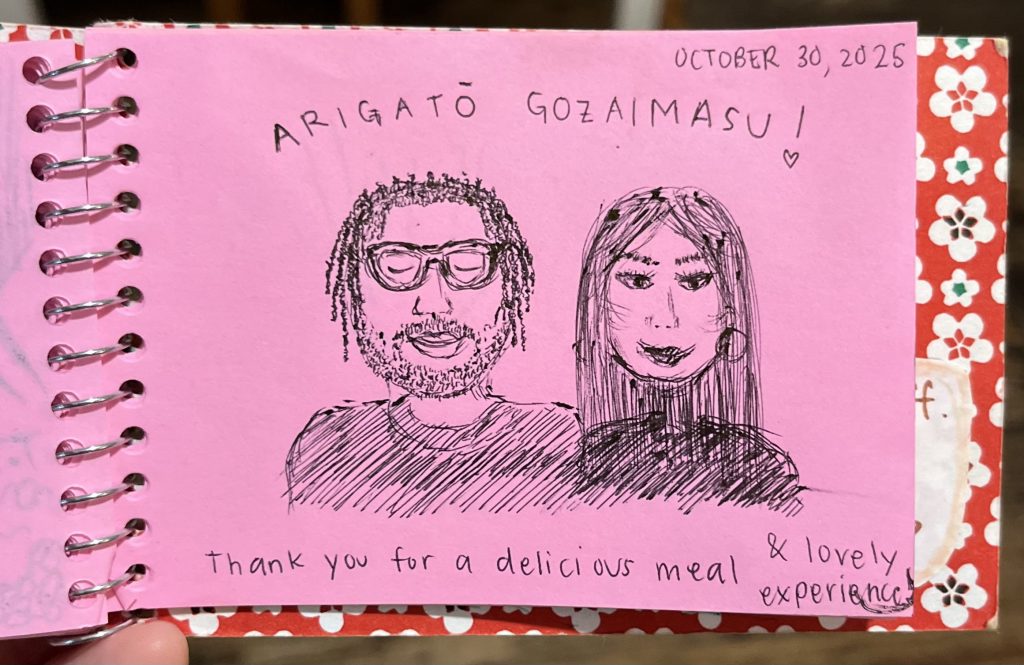 OCTOBER 30, 2025
ARIGATŌ GOZAIMASU!
Thank you for a delicious meal & lovely
experience!
f.